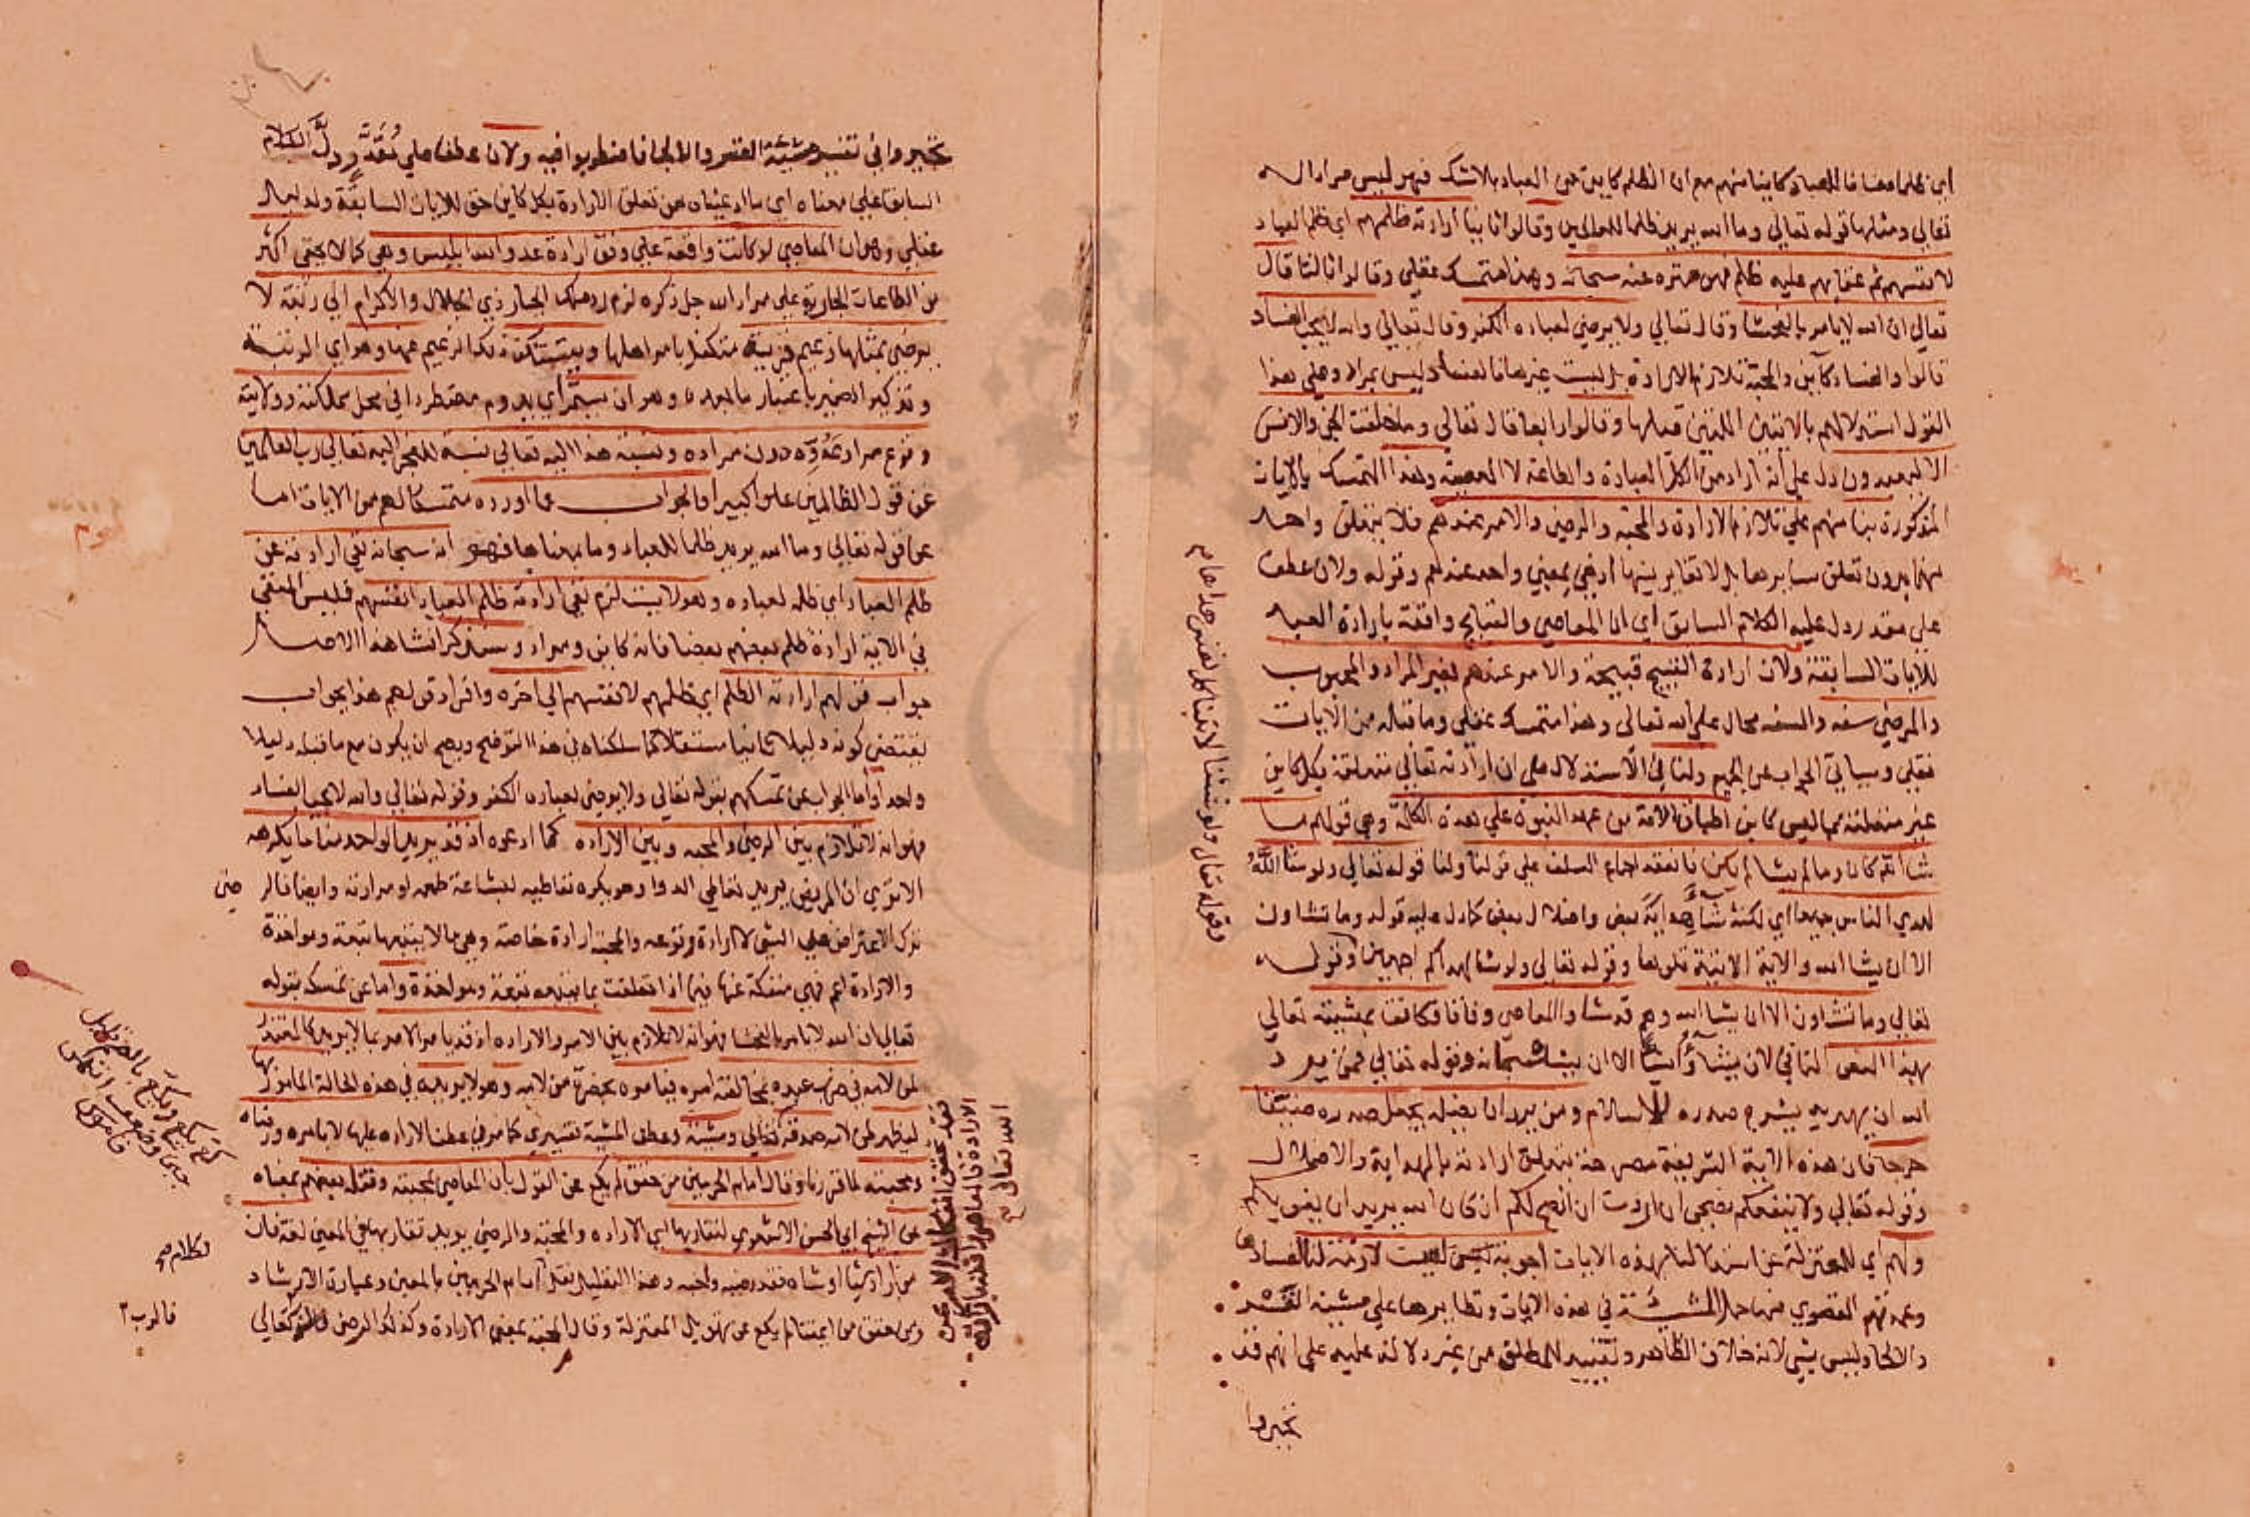 اي ظلما مضافا للعباد كاينا منهم مع ان الظلم كاين من العباد بلا شك فهو ليس مراد الله
تعالى ومثلها قوله تعالى وما الله يريد ظلما للعالمين وقالوا ثانيا ارادته ظلمهم اي ظلم العباد
لانفسهم ثم عقابهم عليه ظلم فهو منزه عنه سبحانه وهذا متمسك عقلي وقالوا ثالثا قال
تعالى ان الله لا يامر بالفحشا وقال تعالى ولا يرضى لعباده الكفر وقال تعالى والله لا يحب الفساد
قالوا والفساد كاين والمحبة تلازم الارادة بل ليست غيرها فالفساد ليس بمراد وعلى هذا
القول استدلالهم بالايتين اللتين قبلها وقالوا رابعا قال تعالى وما خلقت الجن والانس
الا ليعبدون دل على انه اراد من الكل العبادة والطاعة لا المعصية وهذا التمسك بالايات
المذكورة بنا منهم على تلازم الارادة والمحبة والرضى والامر عندهم فلا يتعلق واحد
منها بدون تعلق سايرها بل لا تغاير بينها اذ هي بمعنى واحد عندهم وقوله ولان عطف
على مقدر دل عليه الكلام السابق اي ان المعاصي والقبايح واقعة بارادة العبد
للايات السابقة ولان ارادة القبيح قبيحة والامر عندهم بغير المراد والمحبوب
والمرضي سفه والسفه محال على الله تعالى وهذا متمسك عقلي وما قبله من الايات
نقلي وسياتي الجواب عن الجميع ولنا في الاستدلال على ان ارادته تعالى متعلقة بكل كاين
غير متعلقة بما ليس بكاين اطباق الامة من عهد النبوة على هذه الكلمة وهي قولهم ما
شا الله كان وما لم يشا لم يكن فانعقد اجماع السلف على قولنا ولنا قوله تعالى ولو شا الله
لهدى الناس جميعا اي لكنه شآء هداية بعض واضلال بعض كما دل عليه قوله وما تشاون
الا ان يشا الله والاية الاتية تلوها وقوله تعالى ولو شا لهداكم اجمعين وقوله
تعالى وما تشاون الا ان يشا الله وهم قد شاوا المعاصي وفاقا فكانت بمشيته تعالى
بهذا النص النافي لان يشاؤا شيئا الا ان يشا سبحانه وقوله تعالى فمن يرد
الله ان يهديه يشرح صدره للاسلام ومن يرد ان يضله يجعل صدره ضيقا
حرجا فان هذه الاية الشريفة مصرحة بتعلق ارادته بالهداية والاضلال
وقوله تعالى ولا ينفعكم نصحي ان اردت ان انصح لكم ان كان الله يريد ان يغويكم
ولهم اي للمعتزلة عن استدلالنا بهذه الايات اجوبة ليست لازمة لنا لفسادها
وعمدتهم القصوى منها حمل المشيئة في هذه الايات ونظايرها على مشية القسر
والالجا وليس بشي لانه خلاف الظاهر وتقييد للمطلق من غير دلالة عليه على انهم قد
تحيروا
وقوله تعالى ولو شئنا لاتينا كل نفس هداها
تحيروا في تفسير مشيئة القسر والالجا فاضطربوا فيه ولان عطف على مقدر دل الكلام
السابق على معناه اي ما ادعيناه من تعلق الارادة بكل كاين حق للايات السابقة ولدليل
عقلي وهو ان المعاصي لو كانت واقعة على وفق ارادة عدو الله ابليس وهي كما لا يخفى اكثر
من الطاعات الجارية على مراد الله جل ذكره لزم رد ملك الجبار ذي الجلال والاكرام الى رتبة لا
يرضى بمثلها زعيم قرية متكفل بامر اهلها ويستنكف ذلك الزعيم عنها وهو اي الرتبة
وتذكير الضمير باعتبار ما بعده وهو ان يستمر اي يدوم مضطردا في محل مملكته وولايته
وقوع مراد عدوه دون مراده ونسبة هذا اليه تعالى نسبة للعجز اليه تعالى رب العالمين
عن قول الظالمين علوا كبيرا والجواب عما اورده متمسكا لهم من الايات اما
عن قوله تعالى وما الله يريد ظلما للعباد وما بمعناها فهو انه سبحانه نفى ارادته عن
ظلم العباد اي ظلمه لعباده وهو لا يستلزم نفي ارادته ظلم العباد انفسهم فليس المنفي
في الاية ارادة ظلم بعضهم بعضا فانه كاين ومراد وسنذكر انشا هذا الاحمال
جواب قولهم ارادته الظلم اي ظلمهم لانفسهم الى اخره وافراد قولهم هذا بجواب
يقتضي كونه دليلا ثانيا مستقلا كما سلكناه في هذا التوضيح ويصح ان يكون مع ما قبله دليلا
واحدا واما الجواب عن تمسكهم بقوله تعالى ولا يرضى لعباده الكفر وقوله تعالى والله لا يحب الفساد
فهو انه لا تلازم بين الرضى والمحبة وبين الارادة كما ادعوه اذ قد يريد الواحد منا ما يكرهه
الا ترى ان المريض يريد تعاطي الدوا وهو يكره تعاطيه لبشاعة طعمه او مرارته وايضا فالرضى
ترك الاعتراض على الشي لا ارادة وقوعه والمحبة ارادة خاصة وهي ما لا يتبعها تبعة ومواخذة
والارادة اعم فهي منفكة عنها فيما اذا تعلقت بما يتبعه تبعة ومواخذة واما عن تمسك بقوله
تعالى ان الله لا يامر بالفحشا فهو انه لا تلازم بين الامر والارادة اذ قد يامر الامر بما لا يريد كالمعتذر
لمن لامه في ضرب عبده بمخالفته امره فيامره بحضرة من لامه وهو لا يريده في هذه الحالة المامور بها
ليظهر لمن لامه صدقه فتعالى ومشيته وعطف المشية تفسيري كما مر في عطفنا الارادة عليها لا بامره ورضاه
ومحبته لما قررنا وقال امام الحرمين من حقق لم يكع عن القول بان المعاصي بمحبته ونقله بعضهم بمعناه
عن الشيخ ابي الحسن الاشعري لتقاربها اي الارادة والمحبة والرضى يريد تقاربها في المعنى لغة فان
من اراد شيا او شاه فقد رضيه واحبه وهذا التعليل نقل امام الحرمين بالمعنى وعبارة الارشاد
ومن حقق من ايمتنا لم يكع عن تهويل المعتزلة وقال المحبة بمعنى الارادة وكذلك الرضى فالرب تعالى
كع يكع ويكع بالضم قليل
جبن وضعف انتهى
قاموس
الكلام صح
فالرب ٢
فقد تحقق انفكاك الامر عن
الارادة فالمعاصي واقعة بارادة
الله تعالى